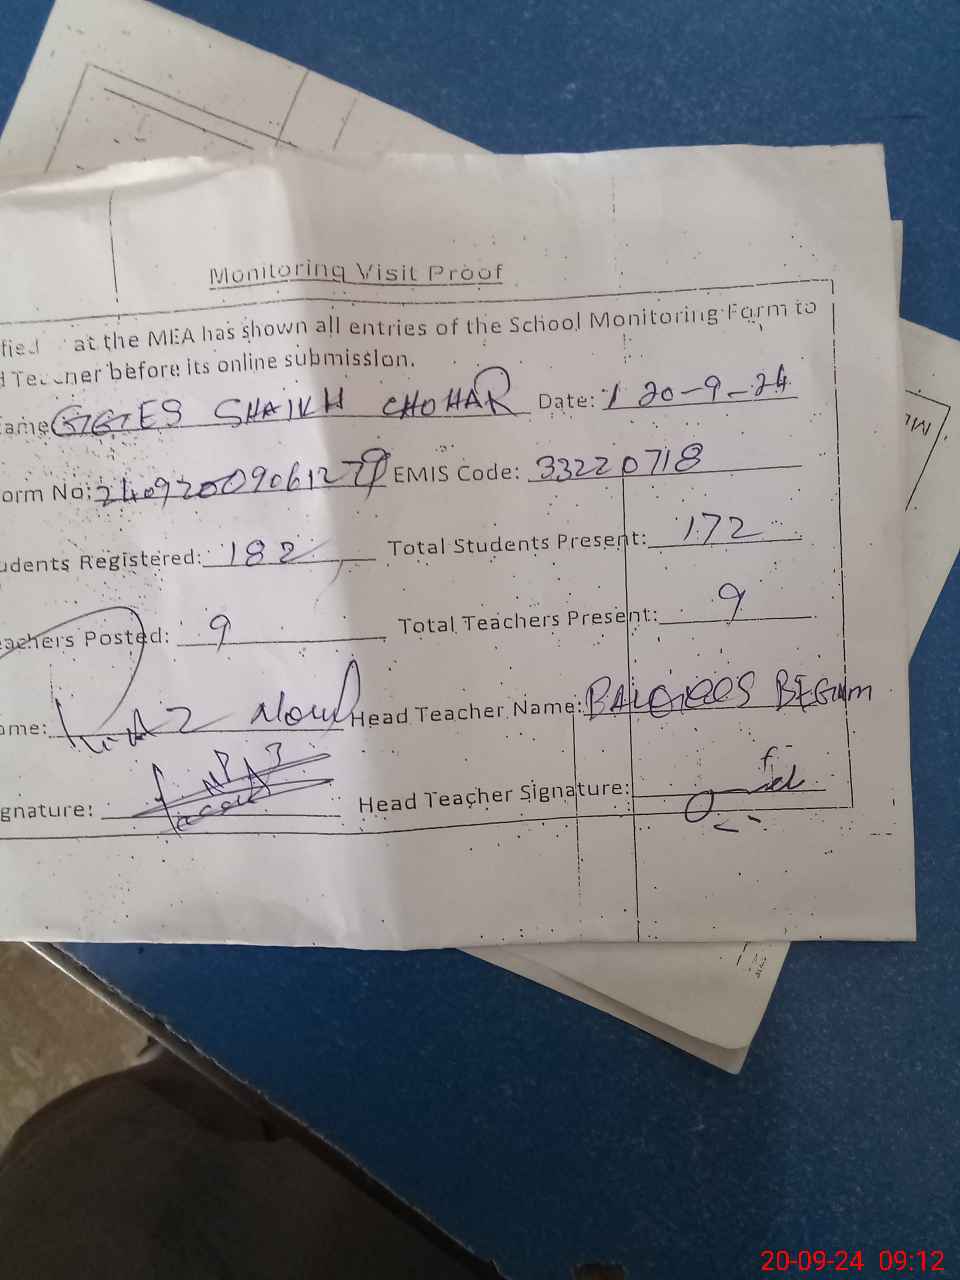 Monitoring Visit Proof
fied at the MEA has shown all entries of the School Monitoring Form to
d Teacher before its online submission.
ame GGES SHAIKH CHOHAR Date: 20-9-24
orm No: 24092009061279 EMIS Code: 33220718
udents Registered: 182 Total Students Present: 172
eachers Posted: 9 Total Teachers Present: 9
ame: Head Teacher Name: BALQEES BEGUM
gnature: Head Teacher Signature:
20-09-24 09:12